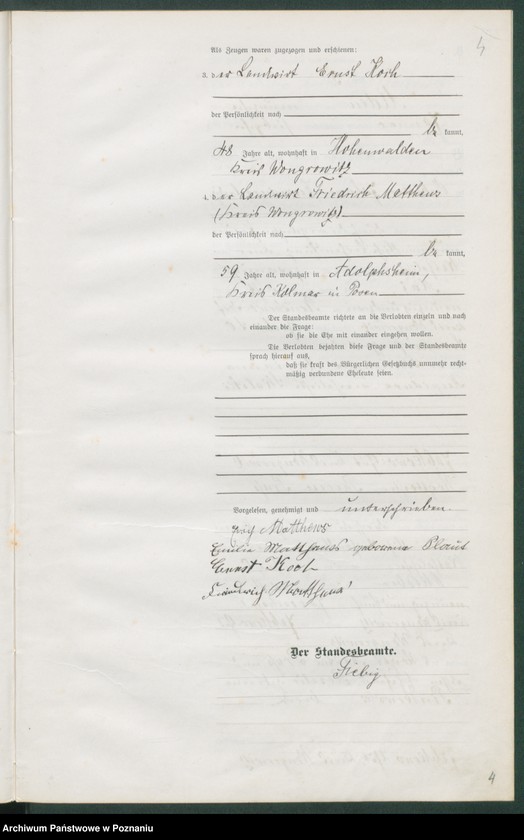 4
Als Zeugen waren zugezogen und erschienen:
3. der Landwirt Ernst Koch
der Persönlichkeit nach
be kannt,
48 Jahre alt, wohnhaft in Hohenwalden
Kreis Wongrowitz
4. der Landwirt Friedrich Matthews
(Kreis Wongrowitz)
der Persönlichkeit nach
be kannt,
59 Jahre alt, wohnhaft in Adolphsheim,
Kreis Kolmar in Posen
Der Standesbeamte richtete an die Verlobten einzeln und nach
einander die Frage:
ob sie die Ehe mit einander eingehen wollen.
Die Verlobten bejahten diese Frage und der Standesbeamte
sprach hierauf aus,
daß sie kraft des Bürgerlichen Gesetzbuchs nunmehr recht-
mäßig verbundene Eheleute seien.
Vorgelesen, genehmigt und unterschrieben
Matthews
Emilie Matthews geborene
Ernst Koch
Friedrich
Der Standesbeamte.
Fiebig
4
Archiwum Państwowe w Poznaniu